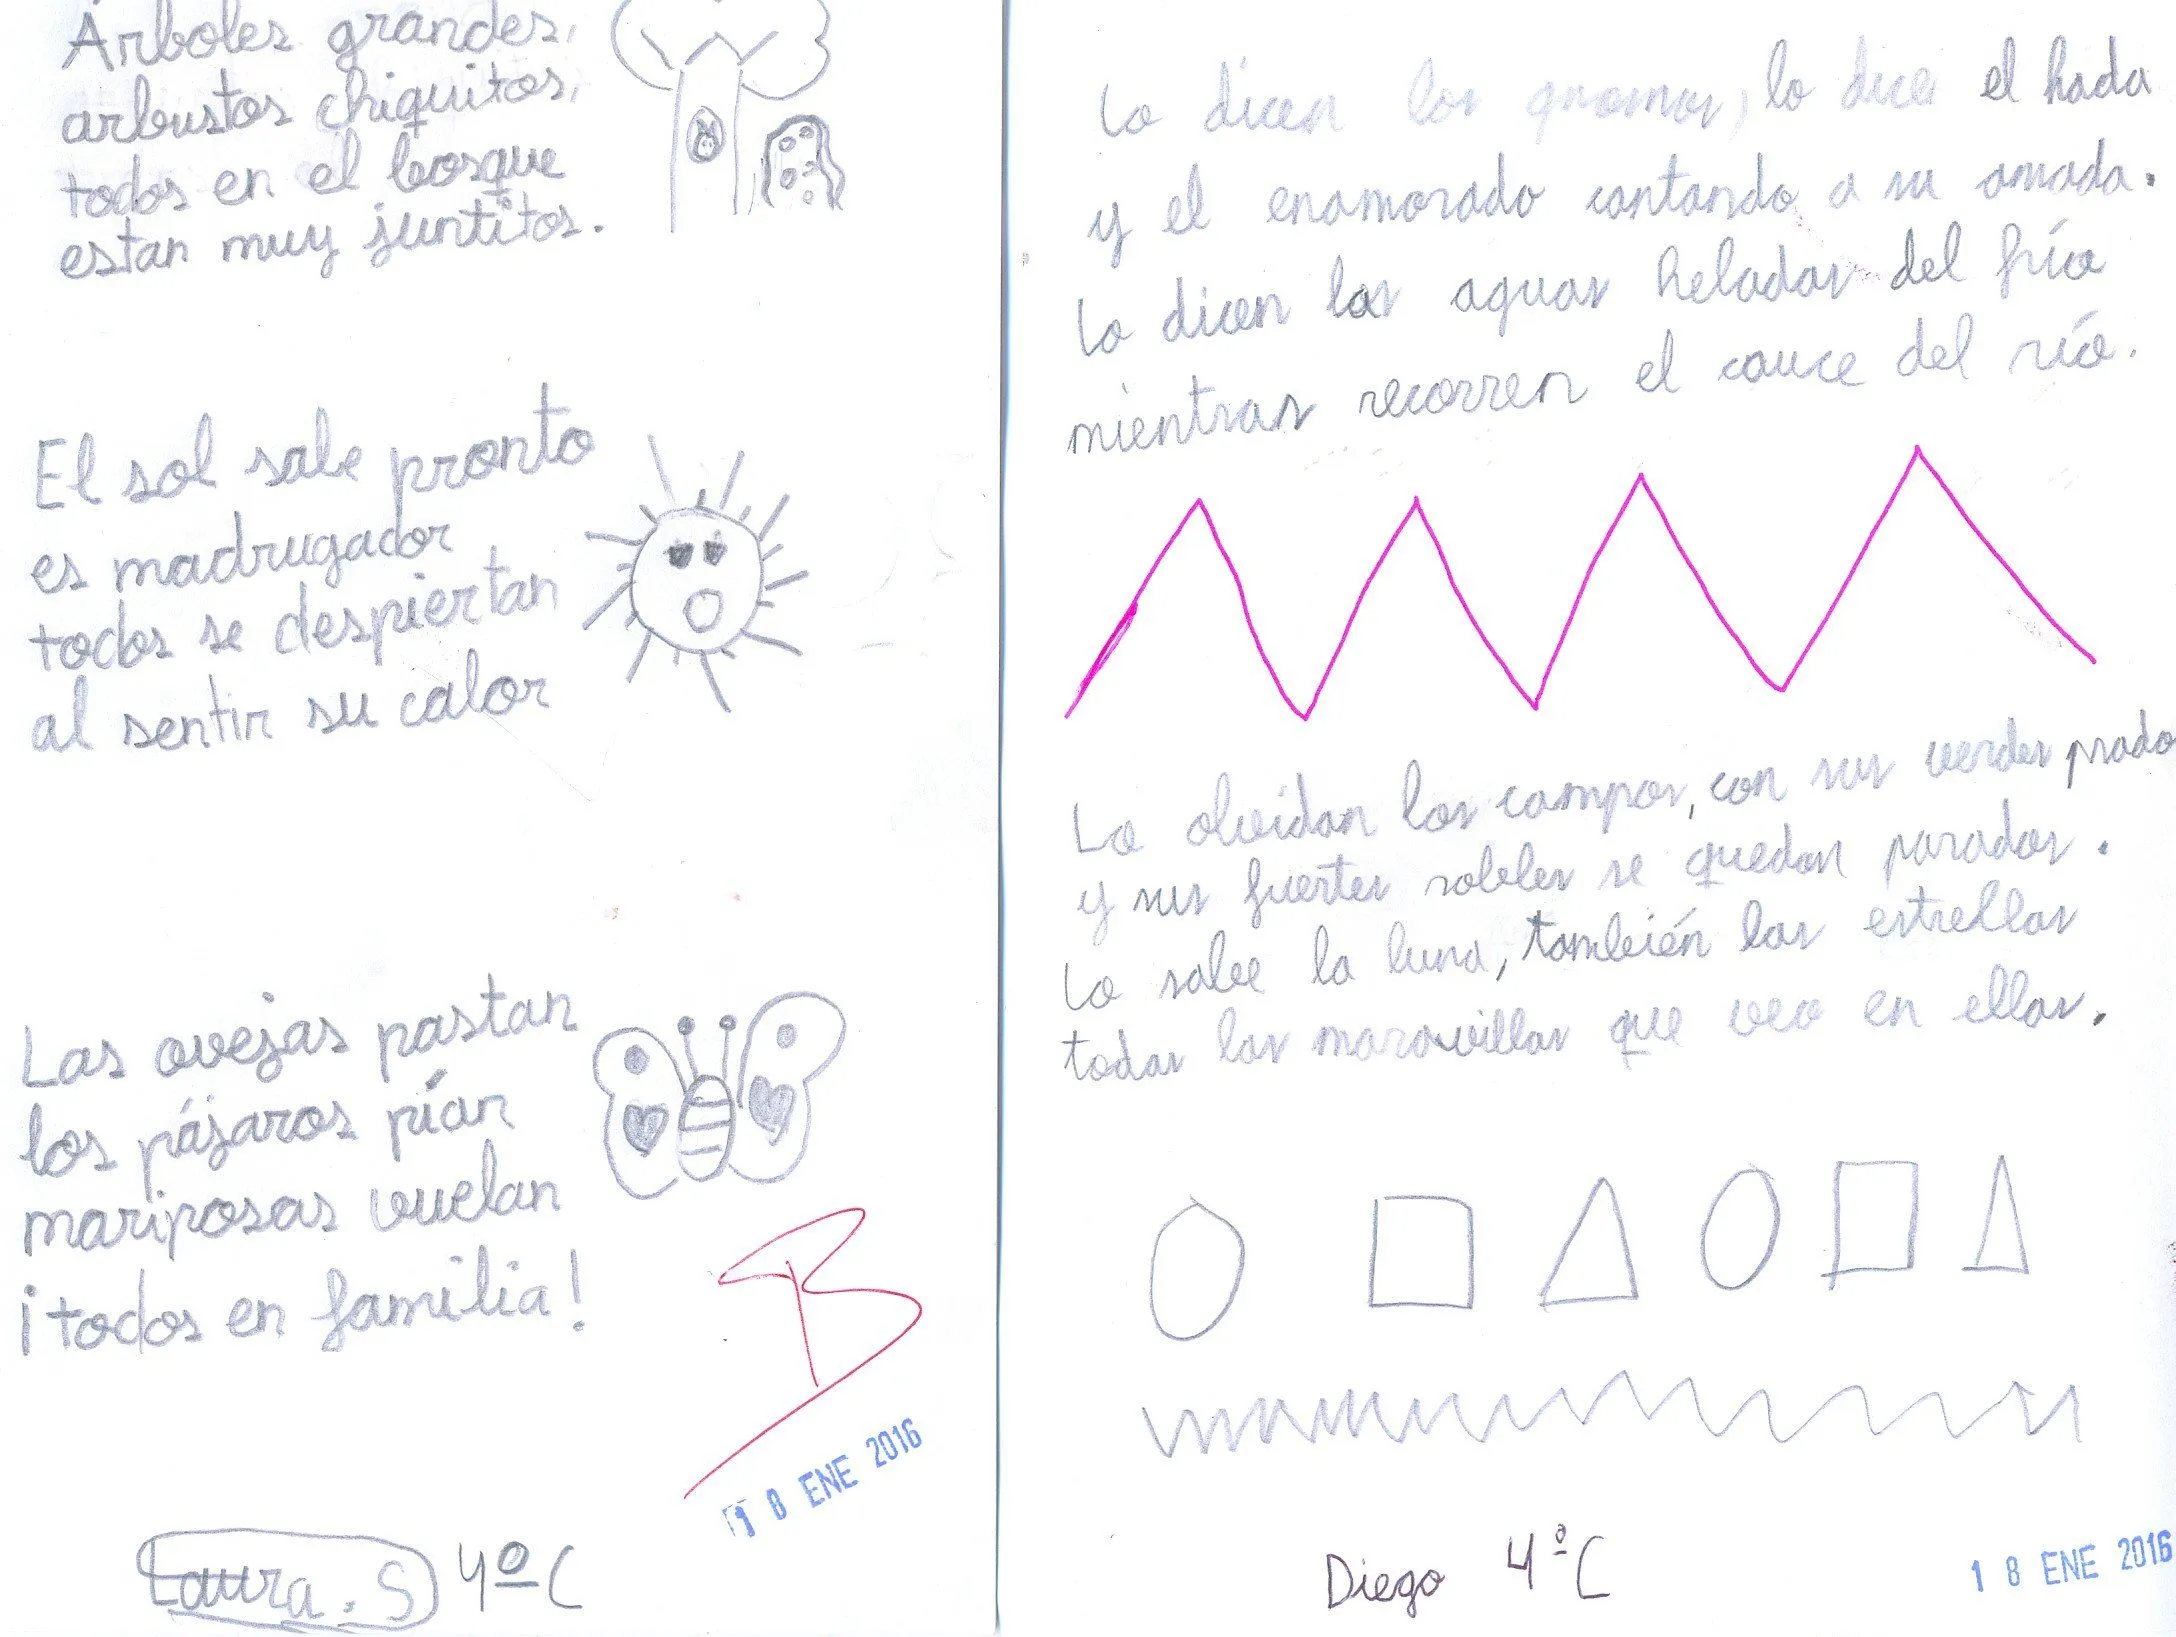 Árboles grandes,
arbustos chiquitos,
todos en el bosque
estan muy juntitos.
El sol sale pronto
es madrugador
todos se despiertan
al sentir su calor
Las ovejas pastan
los pájaros pían
mariposas vuelan
¡todos en familia!
B
18 ENE 2016
Laura. S 4º C
Lo dicen los gnomos, lo dice el hada
y el enamorado cantando a su amada.
Lo dicen las aguas heladas del frío
mientras recorren el cauce del río.
Lo olvidan los campos, con sus verdes prado
y sus fuertes robles se quedan parados.
Lo sabe la luna, también las estrellas
todas las maravillas que veo en ellas.
Diego 4º C
18 ENE 2016